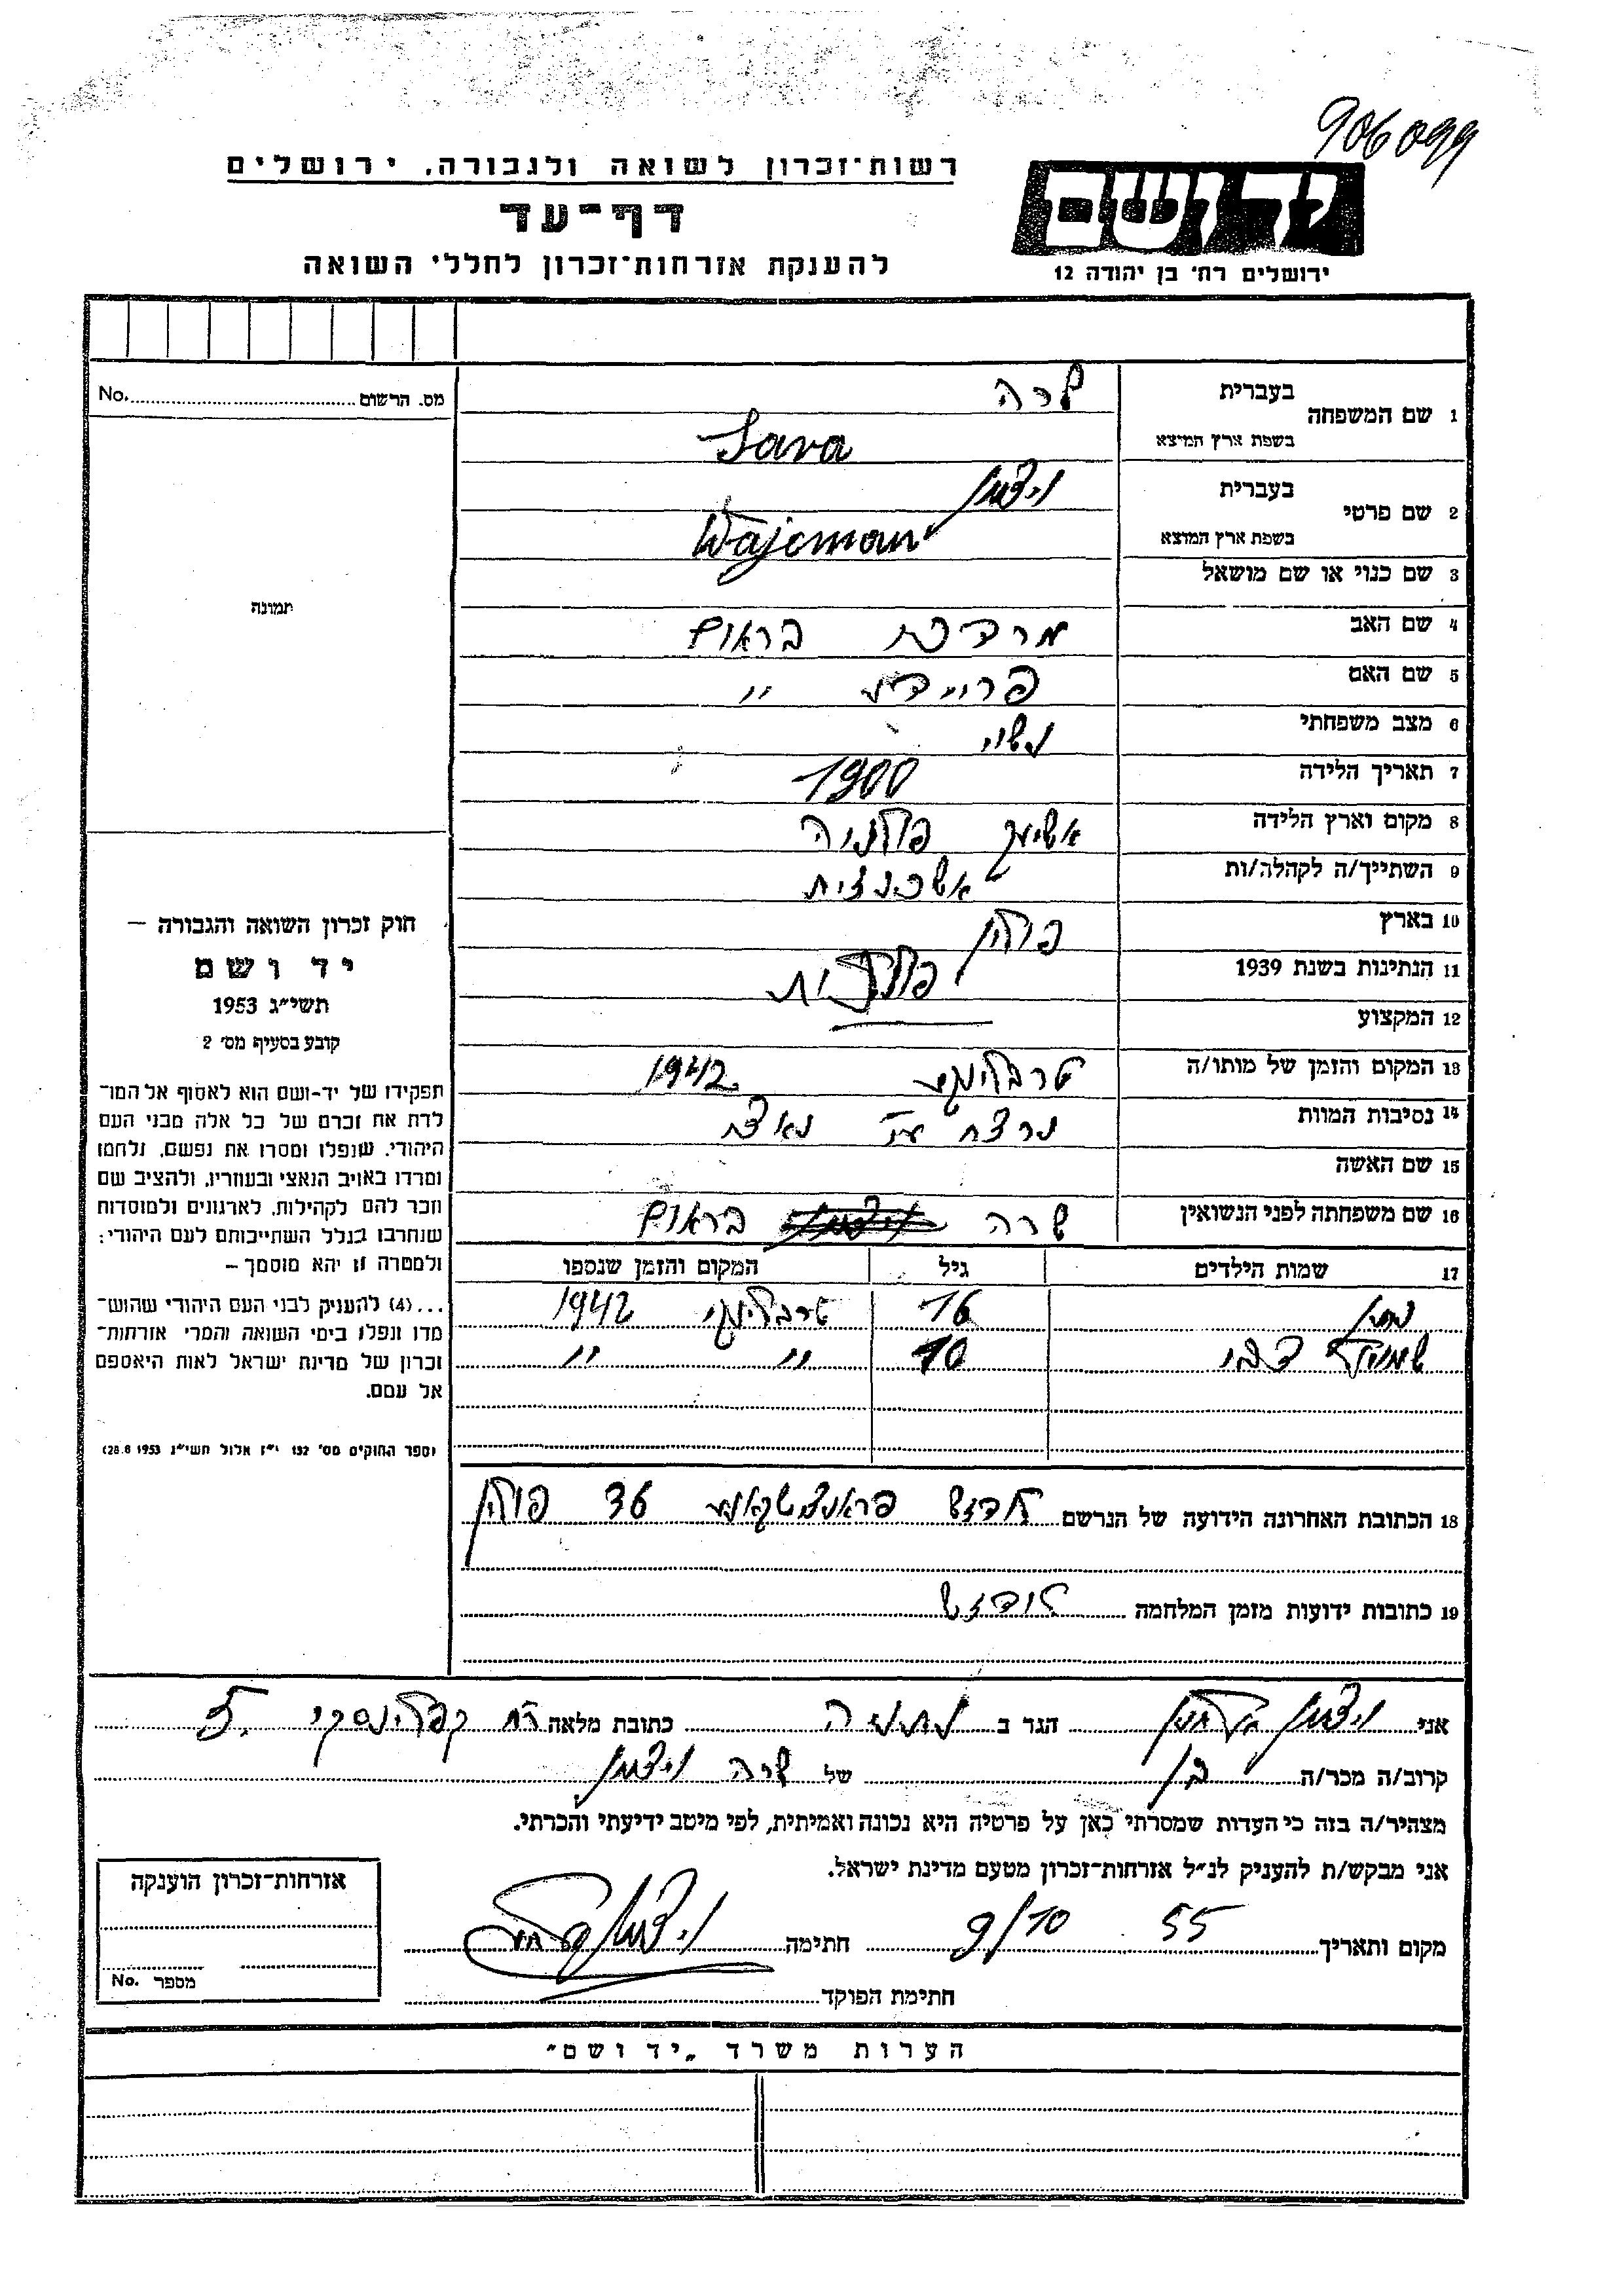 906099
רשות־זכרון לשואה ולגבורה, ירושלים
יד ושם
דף־עד
להענקת אזרחות־זכרון לחללי השואה
ירושלים רח' בן יהודה 12
מס. הרשום No.
1 שם המשפחה בעברית שרה
בשפת ארץ המוצא Sara
2 שם פרטי בעברית ויצמן
בשפת ארץ המוצא Wajcman
3 שם כנוי או שם מושאל
תמונה
4 שם האב מרדכי בראום
5 שם האם פריידע "
6 מצב משפחתי נשוי
7 תאריך הלידה 1900
8 מקום וארץ הלידה פולניה
9 השתייך/ה לקהלה/ות אשכנזית
10 בארץ פולין
11 הנתינות בשנת 1939 פולנית
12 המקצוע
13 המקום והזמן של מותו/ה טרבלינקי 1942
14 נסיבות המוות נרצח נאצי
15 שם האשה
16 שם משפחתה לפני הנשואין שרה בראום
17 שמות הילדים גיל המקום והזמן שנספו
נתן 16 טרבלינקי 1942
10 " "
18 הכתובת האחרונה הידועה של הנרשם לודזש פראנצישקאנער 36 פולין
19 כתובות ידועות מזמן המלחמה לודזש
חוק זכרון השואה והגבורה –
יד ושם
תשי"ג 1953
קובע בסעיף מס' 2
תפקידו של יד-ושם הוא לאסוף אל המו־
לדת את זכרם של כל אלה מבני העם
היהודי, שנפלו ומסרו את נפשם, נלחמו
ומרדו באויב הנאצי ובעוזריו, ולהציב שם
וזכר להם לקהילות, לארגונים ולמוסדות
שנחרבו בגלל השתייכותם לעם היהודי;
ולמטרה זו יהא מוסמך –
...(4) להעניק לבני העם היהודי שהוש־
מדו ונפלו בימי השואה והמרי אזרחות־
זכרון של מדינת ישראל לאות היאספם
אל עמם.
(ספר החוקים מס' 132 י"ז אלול תשי"ג 28.8.1953)
אני ויצמן הגר ב נתניה כתובת מלאה רח קפלינסקי 5.
קרוב/ה מכר/ה בן של שרה ויצמן
מצהיר/ה בזה כי העדות שמסרתי כאן על פרטיה היא נכונה ואמיתית, לפי מיטב ידיעתי והכרתי.
אני מבקש/ת להעניק לנ"ל אזרחות־זכרון מטעם מדינת ישראל.
מקום ותאריך 55 9/10 חתימה ויצמן
חתימת הפוקד
אזרחות־זכרון הוענקה
מספר No.
הערות משרד "יד ושם"